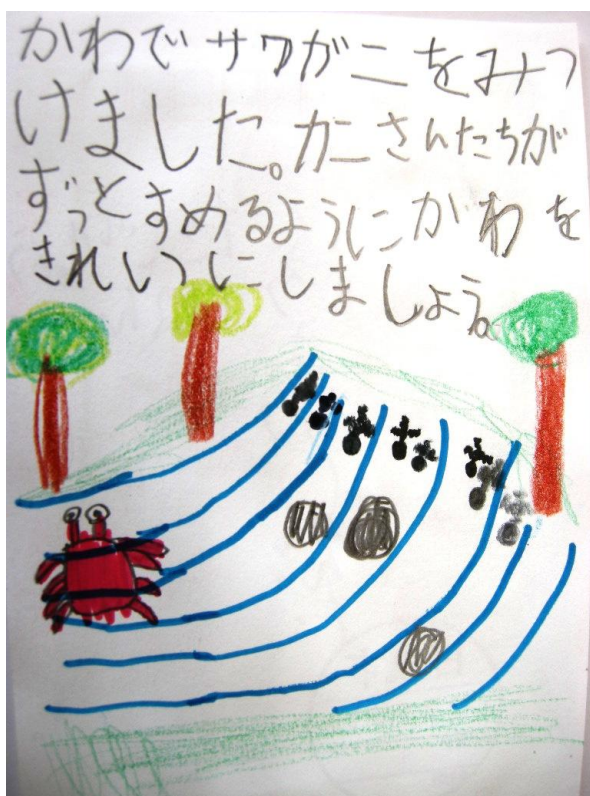 かわでサワガニをみつ
けました。カニさんたちが
ずっとすめるようにかわを
きれいにしましょう。